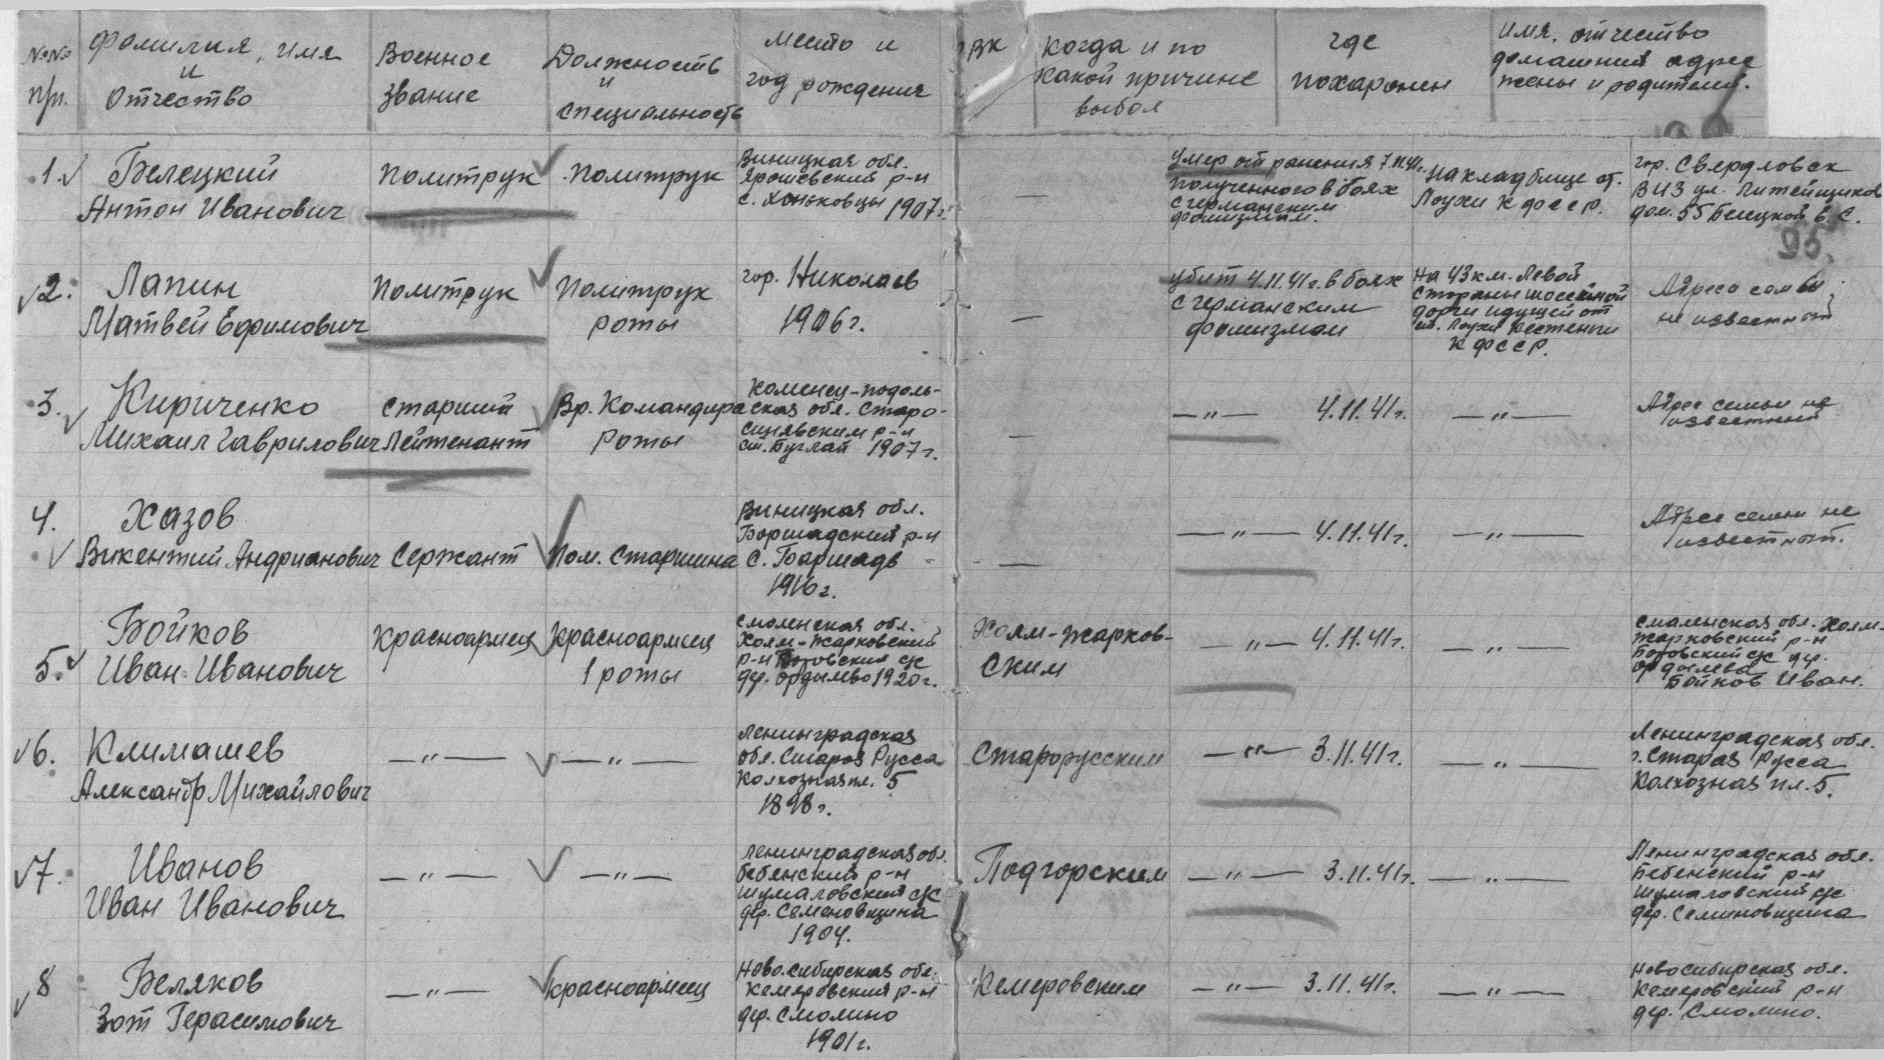 №№ п/п.
Фамилия, имя
и
Отчество
Военное
звание
Должность
и
специальность
место и
год рождения
РВК
Когда и по
какой причине
выбыл
где
похоронен
имя, отчество
домашний адрес
жены и родителей.
1.
Белецкий
Антон Иванович
Политрук
Политрук
Виницкая обл.
Ярошевский р-н
с. Хоньковцы 1907г.
—
Умер от ранения 7.11.41г.
полученного в боях
с германским
фашизмом.
На кладбище ст.
Лоухи К ФССР.
гор. Свердловск
ВИЗ ул. Литейщиков
дом. 55 Белецкой В. С.
95.
2.
Лапин
Матвей Ефимович
Политрук
Политрук
роты
гор. Николаев
1906г.
—
Убит 4.11.41г. в боях
с германским
фашизмом
На 43 км. Левой
стороны шоссейной
дороги идущей от
ст. Лоухи Кестеньги
К ФССР.
Адреса семьи
не известный
3.
Кириченко
Михаил Гаврилович
Старший
Лейтенант
Вр. Командира
роты
Каменец-подоль-
ская обл. Старо-
синявским р-н
ст. Буглай 1907г.
—
—"— 4.11.41г.
—"—
Адрес семьи не
известный
4.
Хазов
Викентий Андрианович
Сержант
Пом. Старшина
Виницкая обл.
Боршадский р-н
с. Баршадь
1916г.
—
—"— 4.11.41г.
—"—
Адрес семьи не
известный.
5.
Бойков
Иван Иванович
Красноармеец
Красноармеец
1 роты
Смоленская обл.
Холм-Жарковский
р-н Боровский с/с
дер. Ордылево 1920г.
Холм-Жарков-
ским
—"— 4.11.41г.
—"—
Смоленская обл. Холм-
Жарковский р-н
Боровский с/с дер.
Ордылева
Бойков Иван.
6.
Климашев
Александр Михайлович
—"—
—"—
Ленинградская
обл. Старая Русса
Колхозная пл. 5
1898г.
Старорусским
—"— 3.11.41г.
—"—
Ленинградская обл.
г. Старая Русса
Колхозная пл. 5.
7.
Иванов
Иван Иванович
—"—
—"—
Ленинградская обл.
Бебенский р-н
Шумаловский с/с
дер. Семеновщина
1904.
Подгорским
—"— 3.11.41г.
—"—
Ленинградская обл.
Бебенский р-н
Шумаловский с/с
дер. Семиновщина
8
Беляков
Зот Герасимович
—"—
Красноармеец
Ново.сибирская обл.
Кемеровский р-н
дер. Смолино
1901г.
Кемеровским
—"— 3.11.41г.
—"—
Новосибирская обл.
Кемеровский р-н
дер. Смолино.